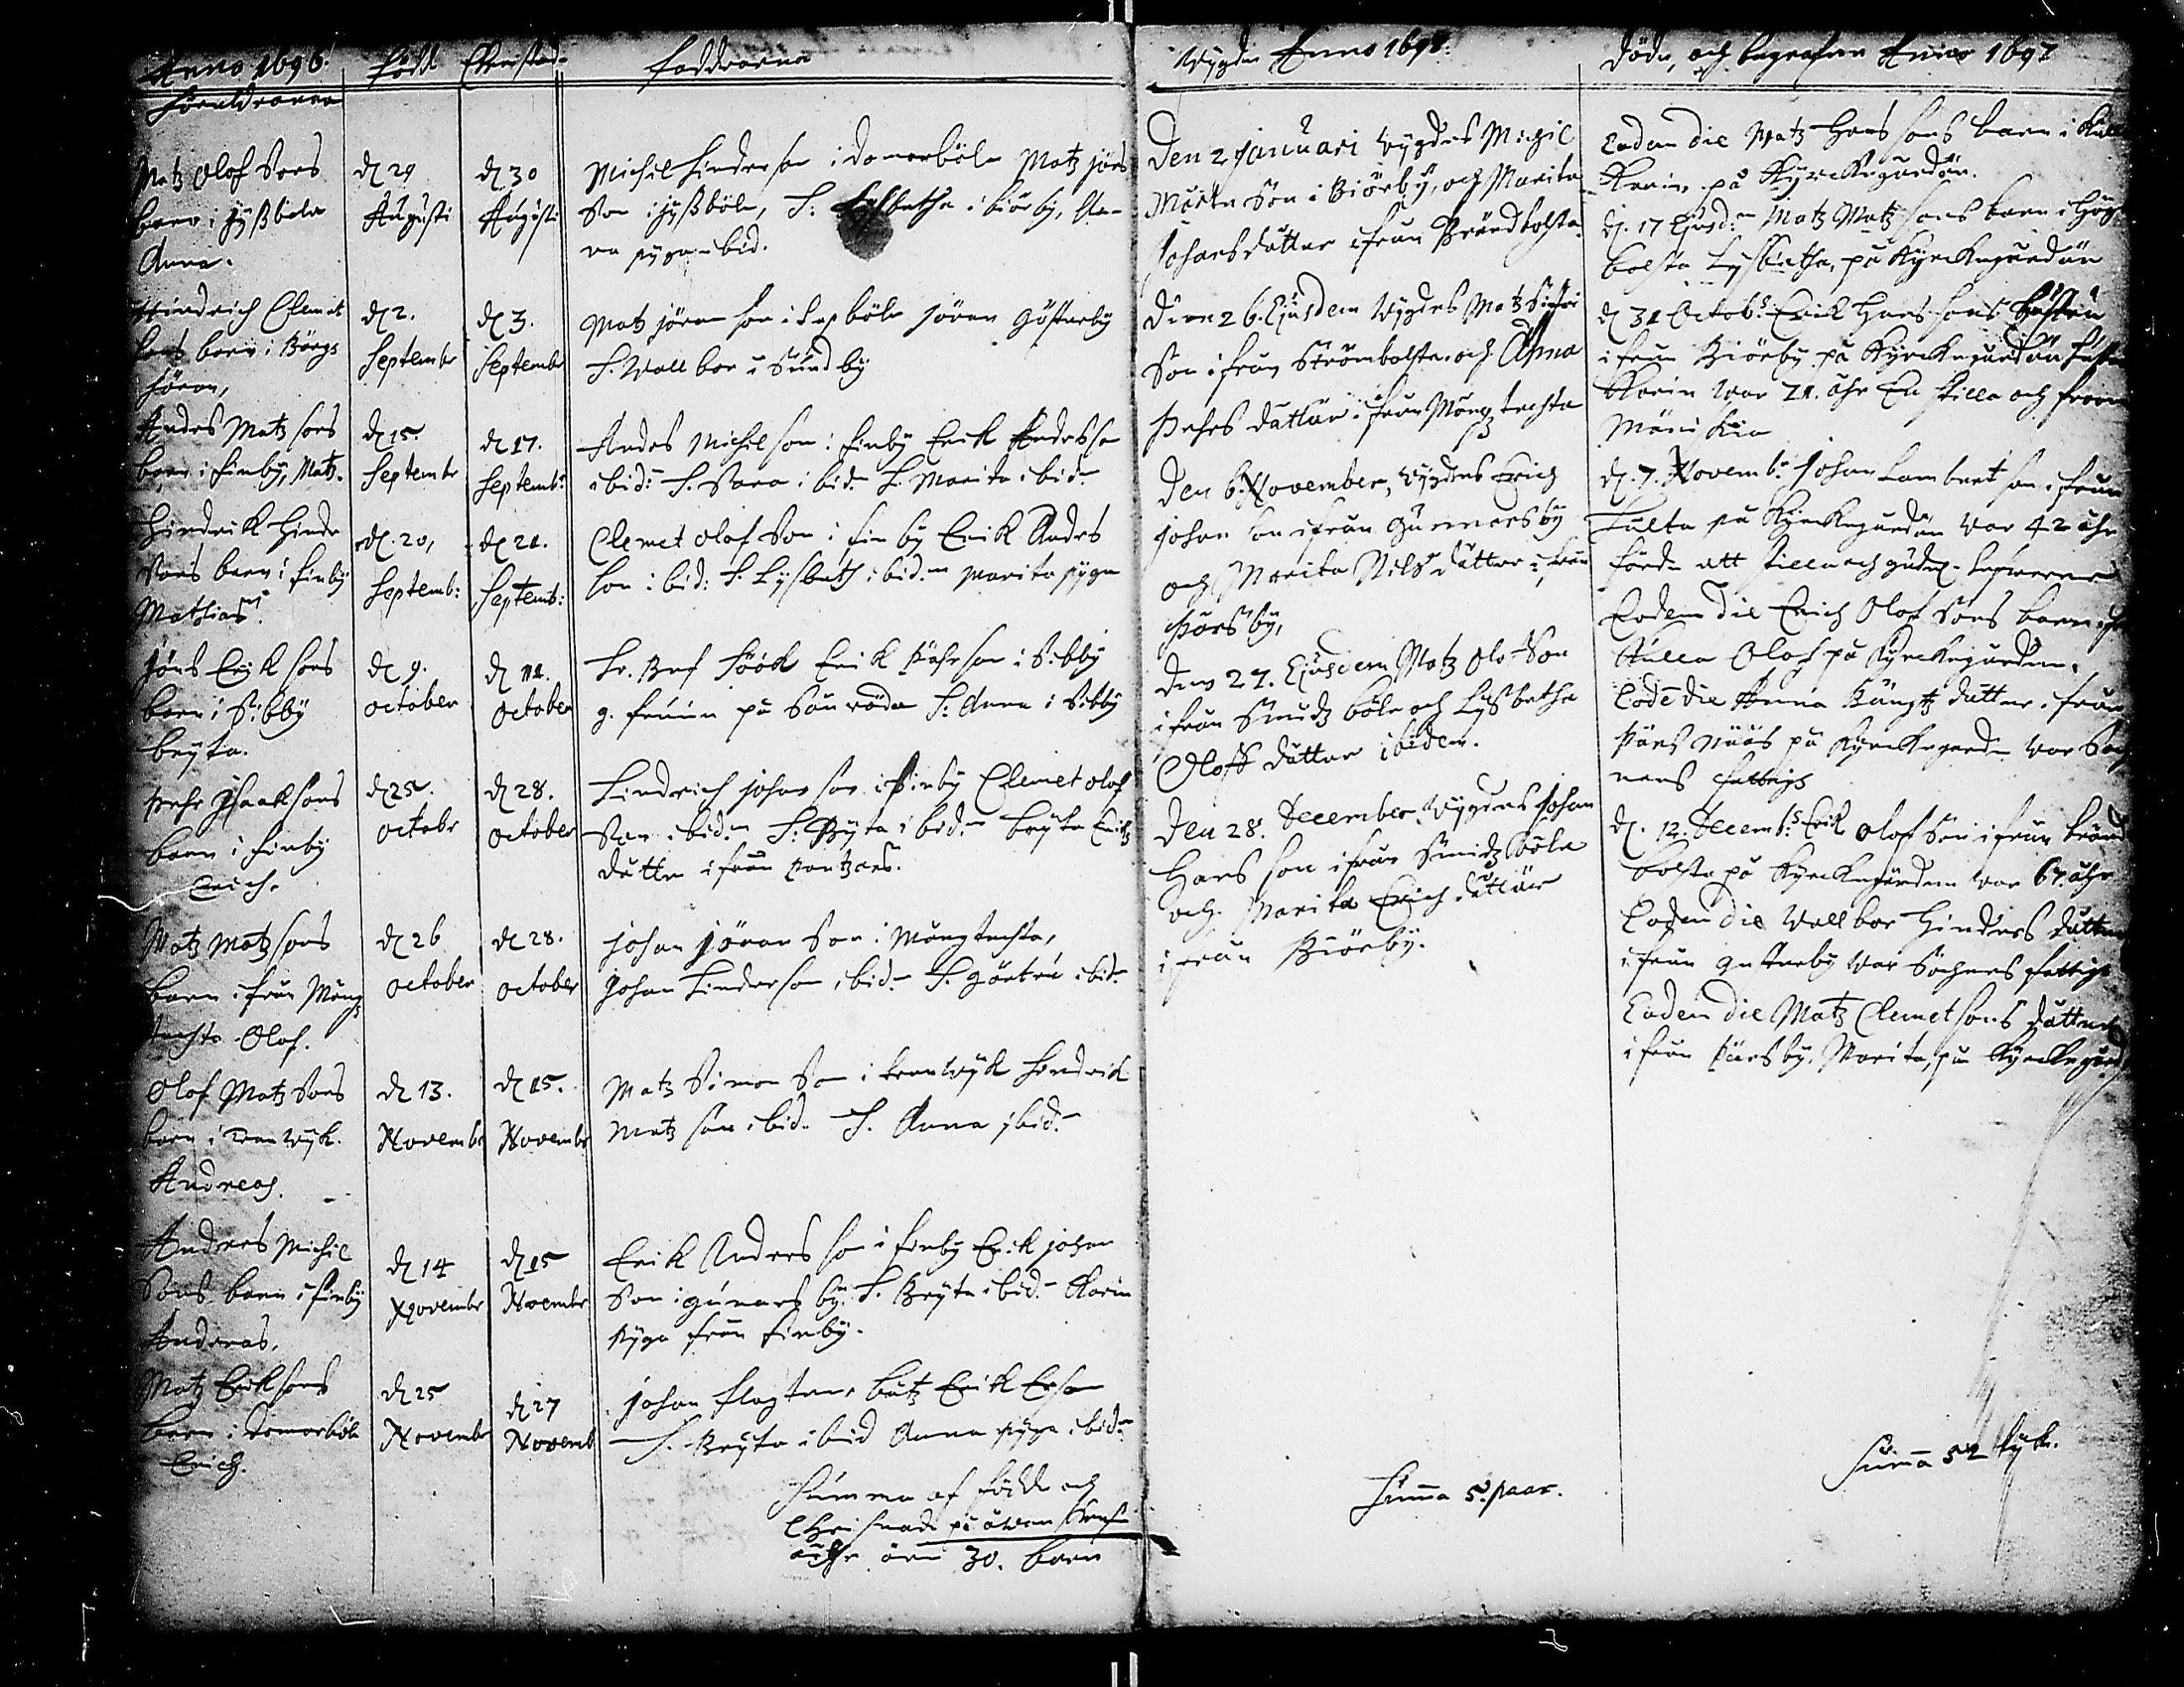 Anno 1696. född Christnad faddrarna
föräldrarna
Matz Olof Sons
barn i Jyßböle
Anna.
d 29
Augusti
d 30
Augusti
Michil Hindersson i domarböle Matz Jöns
Son i Jyßböle, H: Lyßbetha i biörby, An-
na pyga ibid.
Hindrich Clemet
sons barn i Bergs
Jören,
d 2.
Septembr
d 3.
September
Matz Jören son i böle Jören Göstarby
H. Wallbor i Sundby
Andes Matz sons
barn i finby, Matz.
d 15.
Septembr
d 17.
Septemb:
Andes Michel son i finby Erik Andesson
ibid: H. Sara ibid. H. Marita ibid.
Hindrik Hindr
Sons barn i finby
Mathias.
d. 20,
Septemb:
d 21.
Septemb:
Clemet Olof Son i finby Erik Andes
son ibid: H. Lysbeth ibid.m Marita pyga
Jöns Erik sons
barn i Sibby
bryta.
d 9.
october
d 11.
october
Hr. Bef föök Erik Pähr son i Sibby
g. fruun på Sanröda H: Anna i Sibby
Pehr Jsaak sons
barn i finby
Erich.
d 25.
octobr
d 28.
october
Hindrich Johan son i finby Clemet olof
Son ibid.m H: Bryta ibid.m bryta Erichs
dotter ifrån
Matz Matz sons
barn ifrån Mång
techta Olof.
d 26
october
d 28.
october
Johan Jöran Son i Mångtechta,
Johan Hinderson ibid. H. görtru ibid.
Olof Matz Sons
barn i Tranwyk.
Andreas.
d 13.
Novembr
d 15.
Novembr
Matz Simon Son i tranwyk Hindrik
Matz son ibid. H. Anna ibid.
Andres Michil
Sons barn i finby
Anderas.
d 14
Novembr
d 15
Novembr
Erik Andres son i finby Erik Johan
Son i gunarsby. H. Bryta ibid. Karin
pyga från finby.
Matz Erik sons
barn i domarböle
Erich.
d 25
Novembr
d 27
Novemb
Johan båtz Erik Erson
H. Bryta ibid Anna pyga ibid.
Summa af födde och
Christnade på
åhr äre 30. barn
Wygde Anno 1697.
Den 2 Januari wygdes Michil
Mårten Son i Biörby, och Marita
Johansdotter ifrån Brändbolsta.
Den 26. Ejusdem wygdes Matz Sigfri
Son ifrån Strömbolsta. och Anna
Pehrs dotter ifrån Mångtechta
Den 6. November, wygdes Erich
Johan son ifrån Gunnarsby
och Marita Nils dotter ifrån
Pärsby,
Den 27. Ejusdem Matz Olof Son
ifrån Smidzböle och Lysbetha
Olofs dotter ibidem.
Den 28. December wygdes Johan
Hans son ifrån Smidzböle
och Marita Erich dotter
ifrån Biörby.
Summa 5. paar.
Döde, och begrafne Anno 1697
Eodem die Matz Hans sons barn i
Karin på Kyrckegården.
d. 17 Ejusd:m Matz Matz sons barn i Hög
bolsta Lyßbetha, på Kyrckegården
d 31 Octob:s Erik Hans sons hustru
ifrån Biörby på Kyrckegården
Karin war 71. åhr En stilla och from
Mänskia
d. 7. Novemb: Johan Lambert son ifrån
Tulta på Kyrckegården war 42 åhr
förde ett stilla och gudel. lefwerne
Eodem Die Erich Olof Sons barn
Kulla Olof på Kyrckegården.
Eodem die Anna Bängtz dotter ifrån
Pärs näs på Kyrckegården war Soch
nens fattigh
d. 12. Decemb:s Erik Olof Son ifrån bränd
bolsta på Kyrckegården war 67. åhr
Eodem die Wallbor Hinders dotter
ifrån gustarby war Sochnens fattigh
Eodem die Matz Clemet sons dotter
ifrån Pärsby. Marita, på Kyrckegård
Summa 52 stycke.